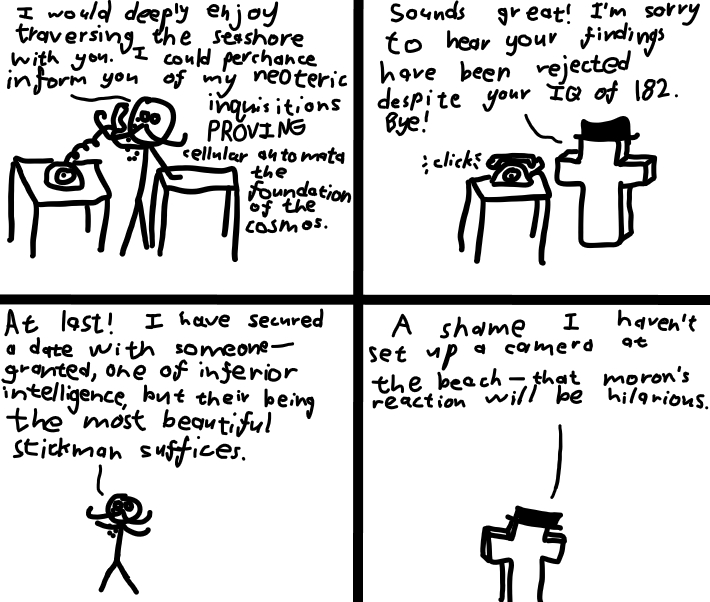 I would deeply enjoy
traversing the seashore
with you. I could perchance
inform you of my neoteric
inquisitions
PROVING
cellular automata
the
foundation
of the
cosmos.
Sounds great! I'm sorry
to hear your findings
have been rejected
despite your IQ of 182.
Bye!
:click:
At last! I have secured
a date with someone—
granted, one of inferior
intelligence, but their being
the most beautiful
stickman suffices.
A shame I haven't
set up a camera at
the beach—that moron's
reaction will be hilarious.